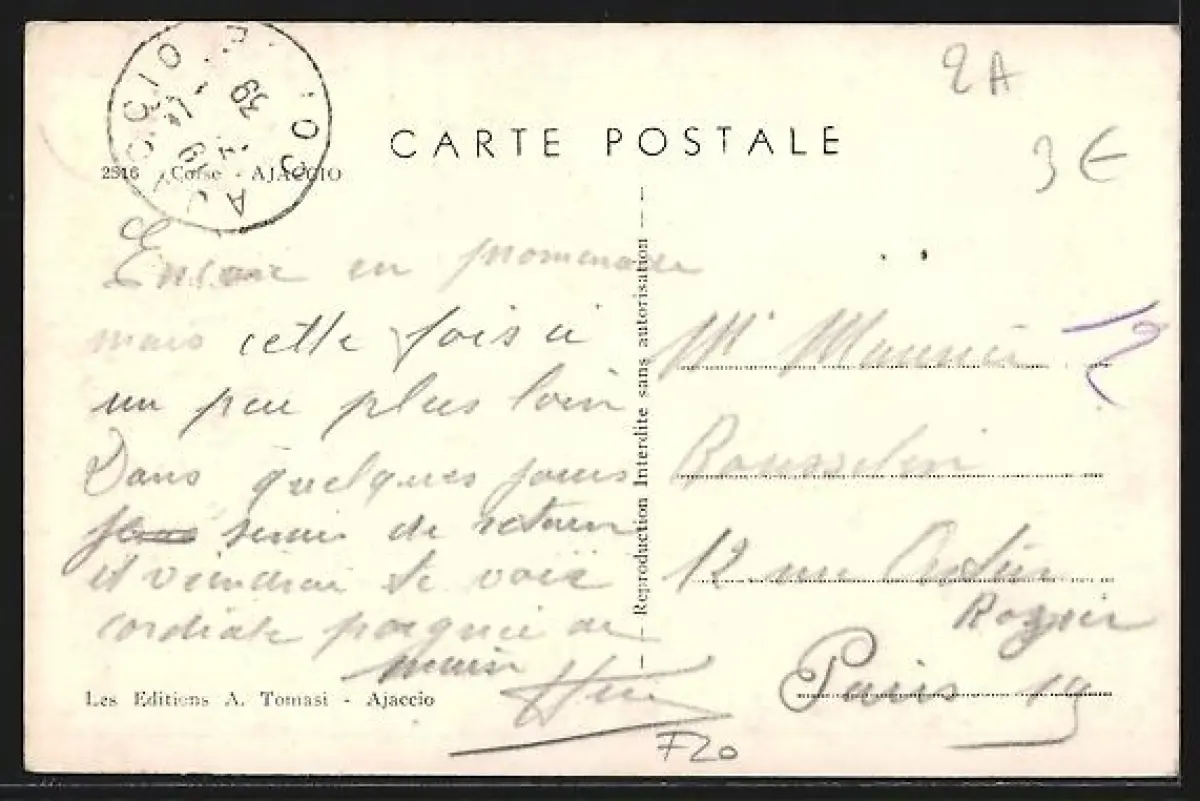 2A
3 €
CARTE POSTALE
2516 Corse - AJACCIO
AJACCIO
39
Encore en promenade
mais cette fois ci
un peu plus loin
Dans quelques jours
serai de retour
et viendrai te voir
cordiale poignée de
main
Les Editions A. Tomasi - Ajaccio
F20
Reproduction Interdite sans autorisation
Mr
12 rue
Rozier
Paris 19